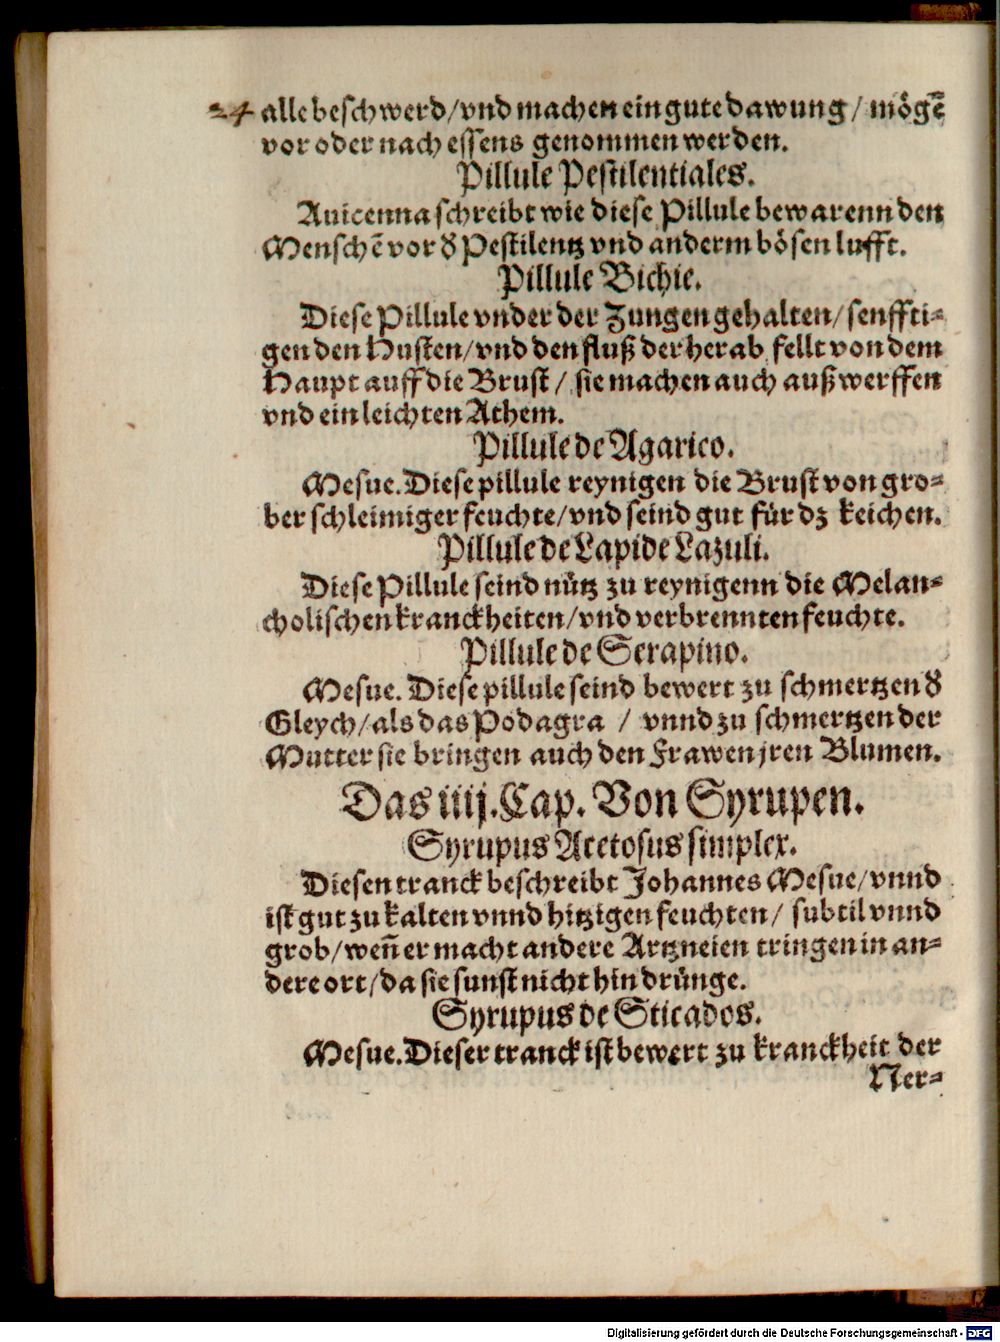 24 alle beschwerd/vnd machen ein gute dawung/ mögē
vor oder nach essens genommen werden.
Pillule Pestilentiales.
Auicenna schreibt wie diese Pillule bewarenn den
Menschē vor d̕ Pestilentz vnd anderm bösen lufft.
Pillule Bichie.
Diese Pillule vnder der Zungen gehalten/ senffti-
gen den Husten/ vnd den fluß der herab fellt von dem
Haupt auff die Brust/ sie machen auch außwerffen
vnd ein leichten Athem.
Pillule de Agarico.
Mesue. Diese pillule reynigen die Brust von gro-
ber schleimiger feuchte/ vnd seind gut für dz keichen.
Pillule de Lapide Lazuli.
Diese Pillule seind nütz zu reynigenn die Melan-
cholischen kranckheiten/ vnd verbrennten feuchte.
Pillule de Serapino.
Mesue. Diese pillule seind bewert zu schmertzen d̕
Gleych/ als das Podagra / vnnd zu schmertzen der
Mutter sie bringen auch den Frawen jren Blumen.
Das iiij. Cap. Von Syrupen.
Syrupus Acetosus simplex.
Diesen tranck beschreibt Johannes Mesue/ vnnd
ist gut zu kalten vnnd hitzigen feuchten/ subtil vnnd
grob/ weñ er macht andere Artzneien tringen in an-
dere ort/ da sie sunst nicht hin drünge.
Syrupus de Sticados.
Mesue. Dieser tranck ist bewert zu kranckheit der
Ner-
Digitalisierung gefördert durch die Deutsche Forschungsgemeinschaft - DFG